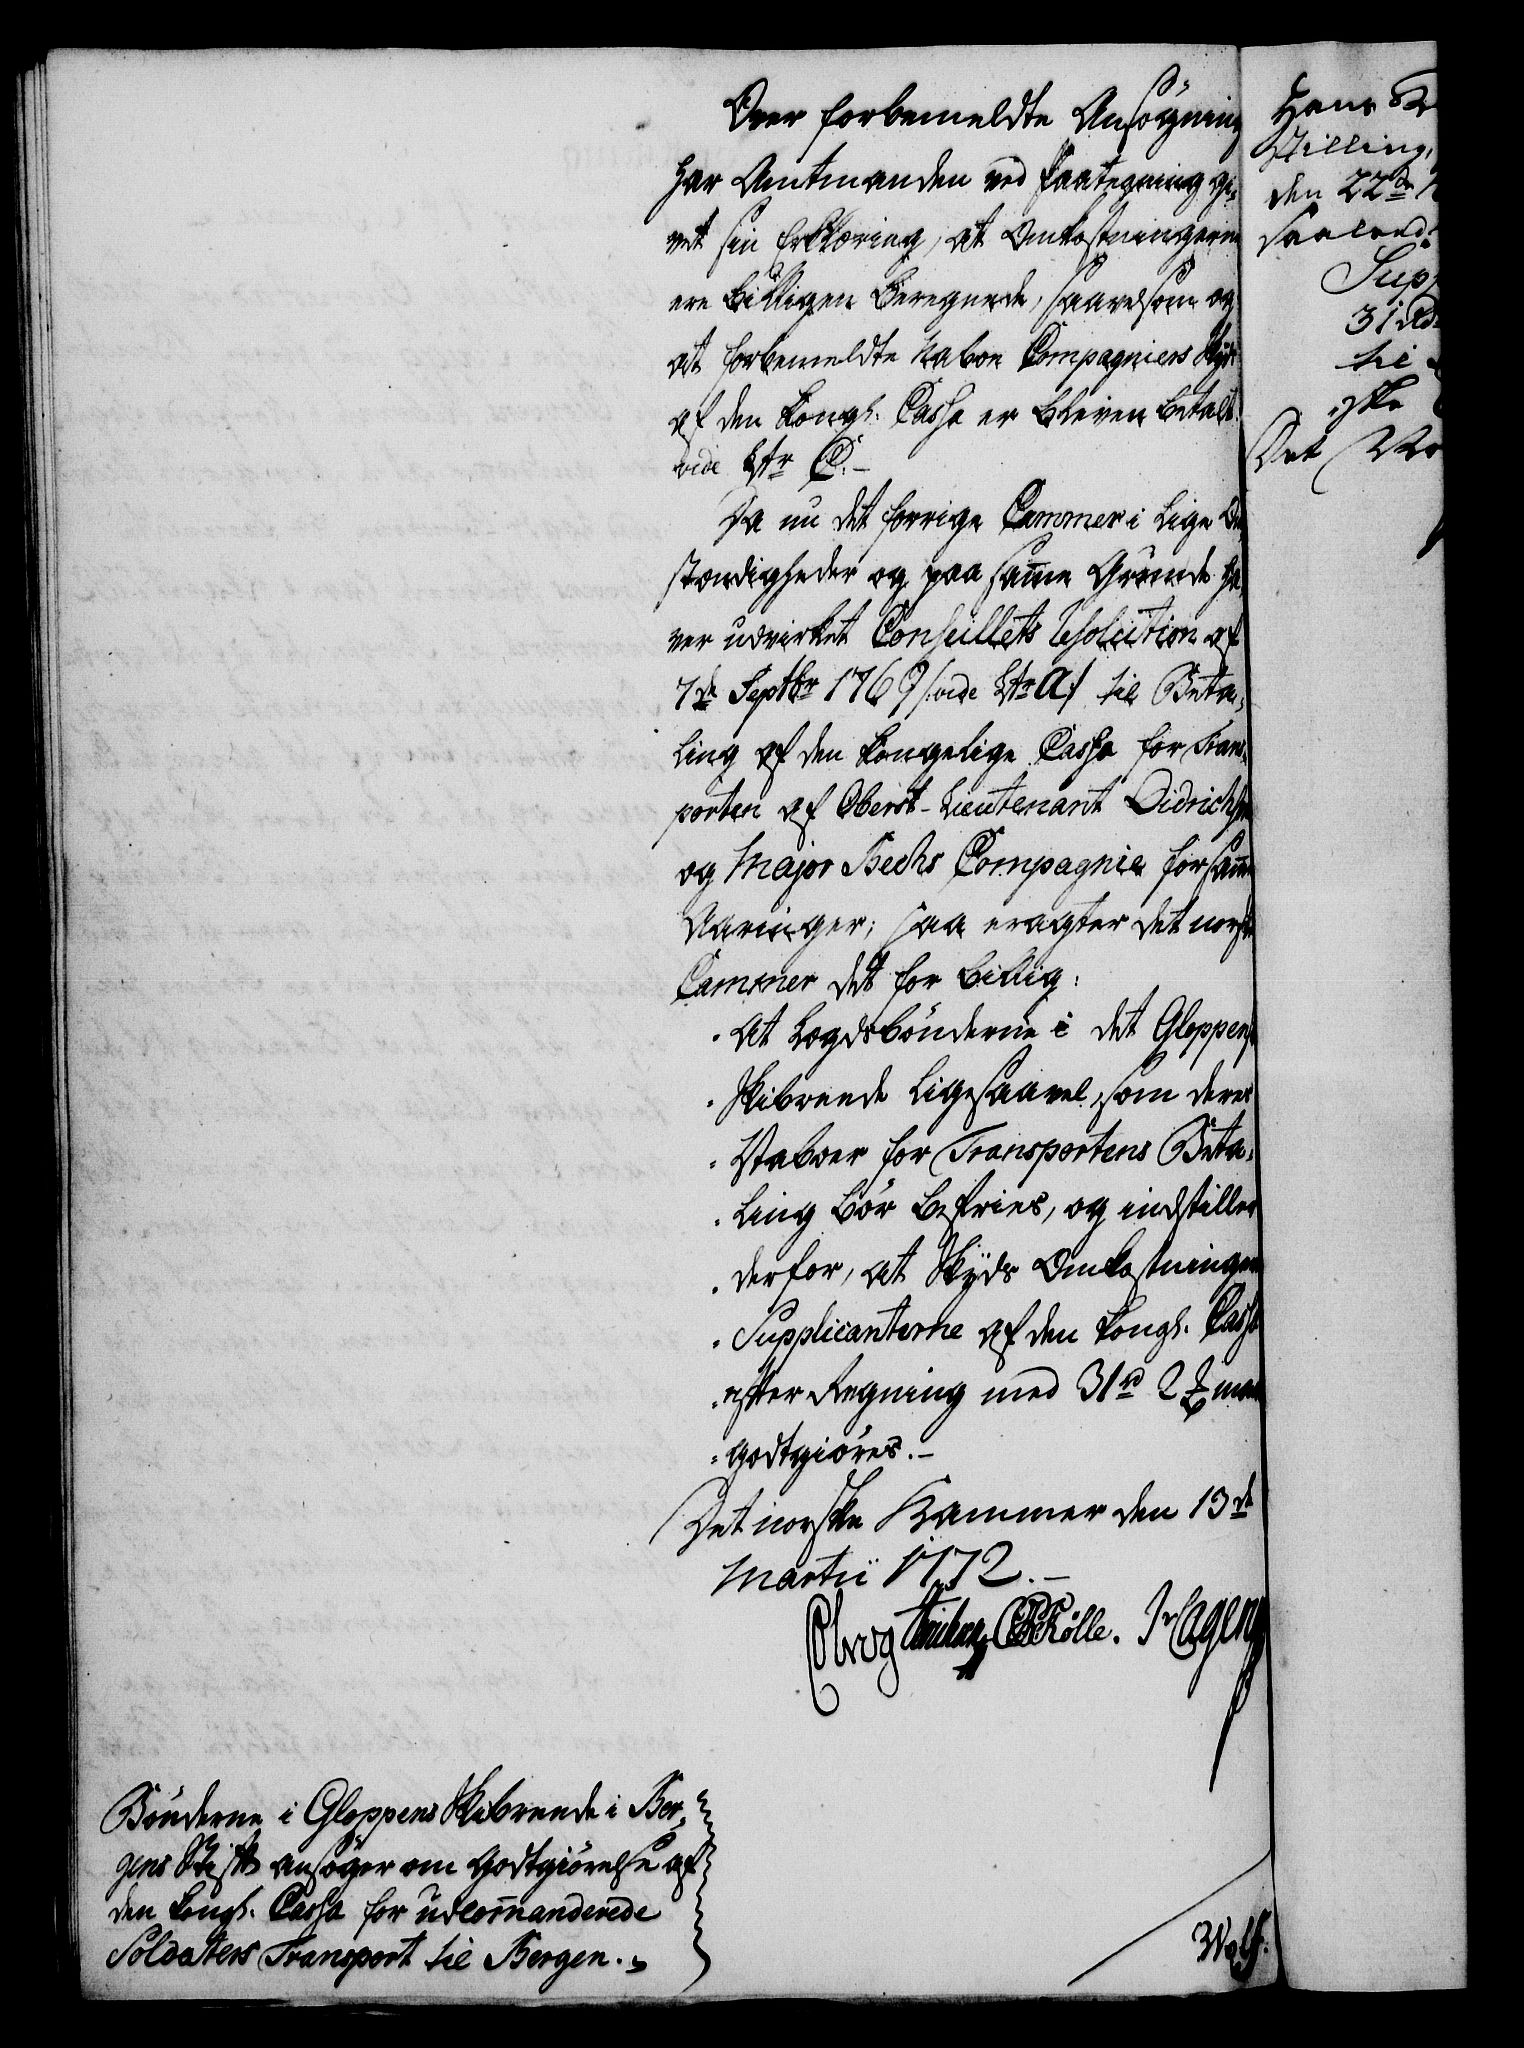 Over forbemeldte Ansögning
har Amtmanden ved Paategning gi-
vet sin Erklæring, at Omkostningerne
ere billigen beregnede, saavelsom og
at forbemeldte Naboe Compagniers Skyds
af den Kongl. Cassa er bleven betalt.
vide Ltr C. -
Da nu det forrige Cammer i lige Om-
stændigheder og paa samme Grunde ha-
ver udvirket Conseillets Resolution af
7de Septbr 1769 /:vide Ltr A:/ til Beta-
ling af den Kongelige Cassa for Trans-
porten af Oberst-Lieutenant Didrichsen
og Major Bechs Compagnie for samme
Aaringer; saa eragter det norske
Cammer det for billig:
at Lægdsbönderne i det Gloppens
Skibreede ligesaavel, som deres
Naboer for Transportens Beta-
ling bör befries, og indstiller
derfor, at Skyds Omkostningen
Supplicanterne af den Kongl. Cassa
efter Regning med 31 rd 2 mark
godtgiöres. -
Det norske Kammer den 13de
Martii 1772. -
Holle.
Bönderne i Gloppens Skibreede i Ber-
gens Stift ansöger om Godtgiörelse af
den Kongl. Cassa for udcommanderede
Soldaters Transport til Bergen.
Hans
Stilling,
den 22de
saaled
Supp
31 Rd
til
iske
Det